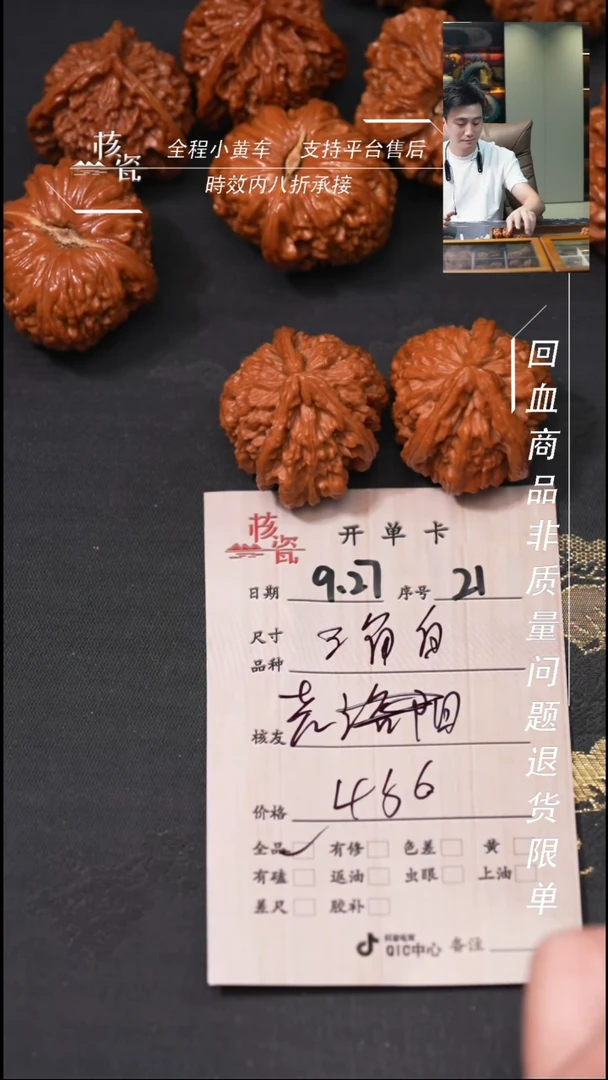 核瓷
全程小黄车 支持平台售后
時效内八折承接
回血商品非质量问题退货限单
核瓷 开单卡
日期 9.27 序号 21
尺寸
品种
核友
价格 466
全品 有修 色差 黄
有磕 返油 虫眼 上油
差尺 胶补
抖音电商
QIC中心 备注